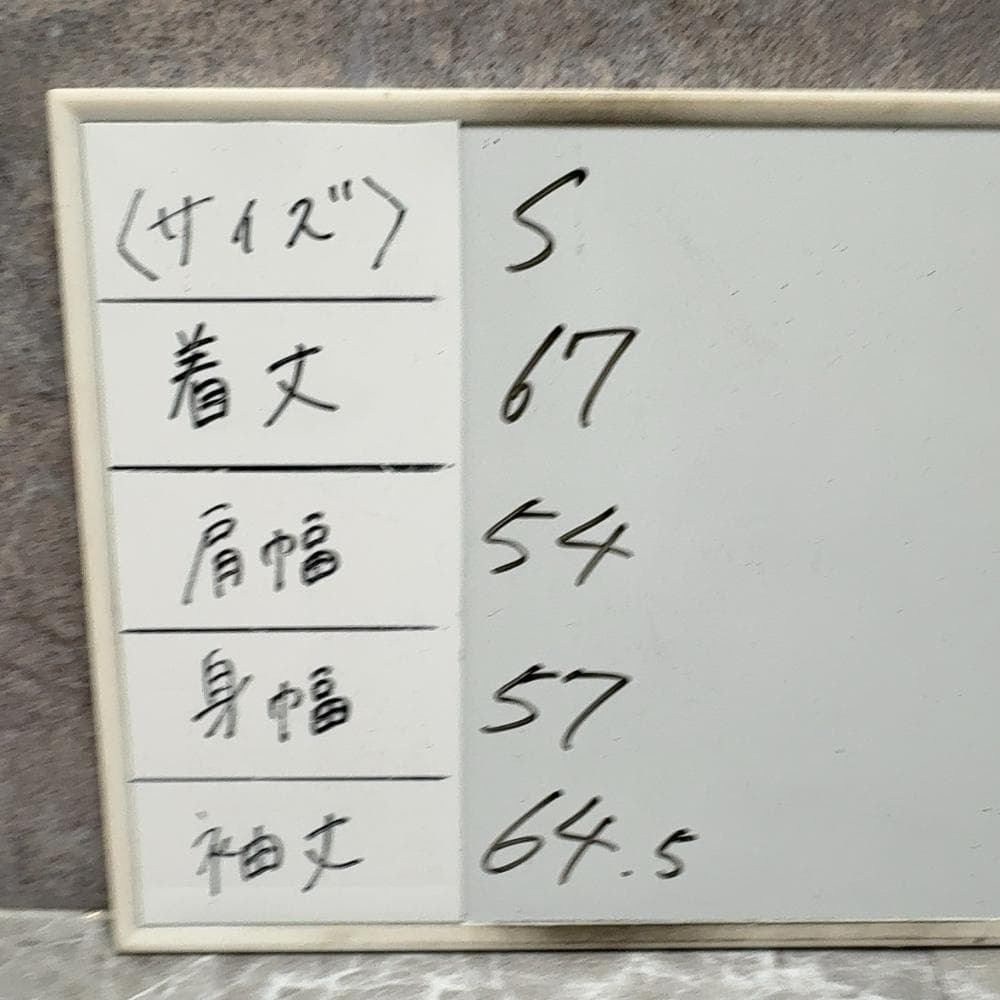 〈サイズ〉 S
着丈 67
肩幅 54
身幅 57
袖丈 64.5